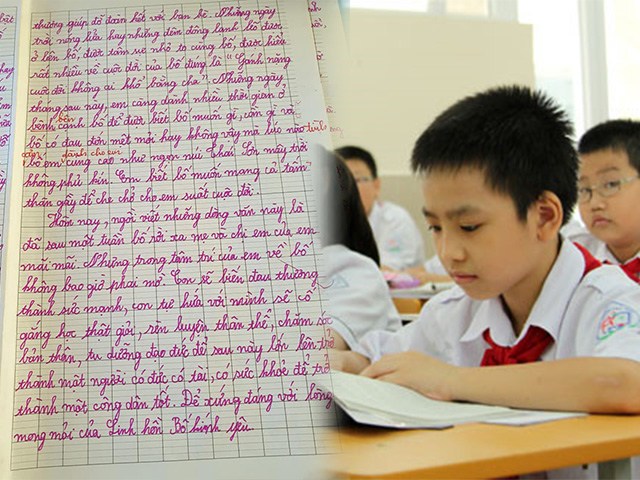 thương giúp đỡ đoàn kết với bạn bè. Những ngày
trời nóng lửa hay những đêm đông lạnh lẽo được
ở bên bố, được tâm sự nhỏ to cùng bố, được hiểu
rất nhiều về cuộc đời của bố đúng là "Gánh nặng
cuộc đời không ai khổ bằng cha". Những ngày
tháng sau này, em càng dành nhiều thời gian ở
bên
bệnh cạnh bố để được biết bố muốn gì, cần gì và
bố có đau đớn mệt mỏi hay không vậy mà lúc nào
dành cho em
bố em cũng cao như ngọn núi Thái Sơn mây trời
không phủ kín. Em biết bố muốn mang cả tấm
thân gầy để che chở cho em suốt cuộc đời.
Hôm nay, ngồi viết những dòng văn này là
đã sau một tuần bố rời xa mẹ và chị em của em
mãi mãi. Nhưng trong tâm trí của em về bố
không bao giờ phai mờ. Con sẽ biến đau thương
thành sức mạnh, con tự hứa với mình sẽ cố
gắng học thật giỏi, rèn luyện thân thể, chăm
bản thân, tu dưỡng đạo đức để sau này lớn lên
thành một người có đức có tài, có sức khỏe để trở
thành một công dân tốt. Để xứng đáng với lòng
mong mỏi của Linh hồn Bố kính yêu.